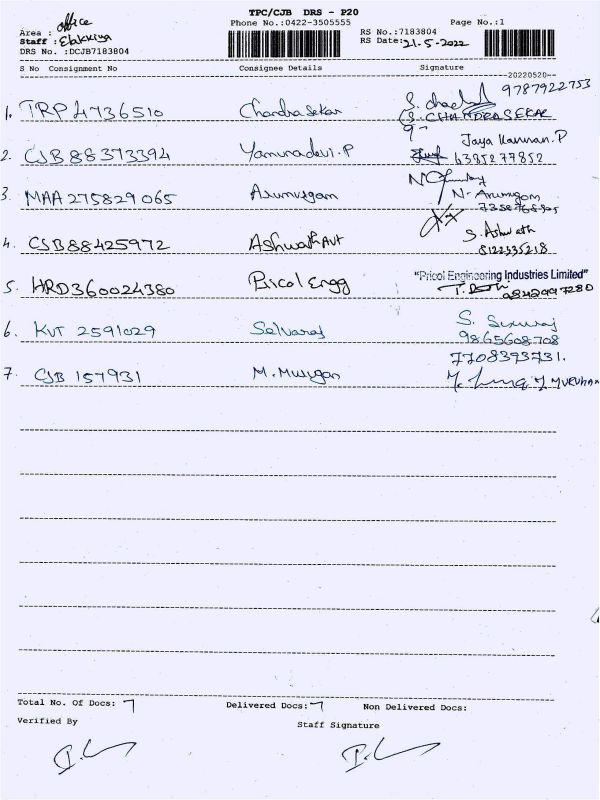 TPC/CJB DRS - P20
Phone No.:0422-3505555
Page No.:1
Area : office
Staff : Elakkiya
DRS No. :DCJB7183804
RS No.:7183804
RS Date:21-5-2022
S No Consignment No Consignee Details Signature
20220520
9787922753
1. TRP 4736510 Chandra Sekar
(S. CHANDRASEKAR
Jaya Kannan.P
2. CJB 88373394 Yamunadevi.P 6385277852
3. MAA 275829065 Arumugam N. Arumugam
4. CJB88425972 Ashwath Avt S. Ashwath
8122335218
"Pricol Engineering Industries Limited"
5. HRD360024380 Pricol Engg
6. KVT 2591029 Selvaraj S. Selvaraj
9865608708
7708393731.
7. CJB 157931 M. Murugan
Total No. Of Docs: 7 Delivered Docs: 7 Non Delivered Docs:
Verified By Staff Signature